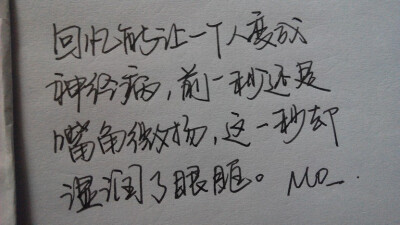 回忆能让一个人变成
神经病，前一秒还是
嘴角微扬，这一秒却
湿润了眼眶。 MO_.